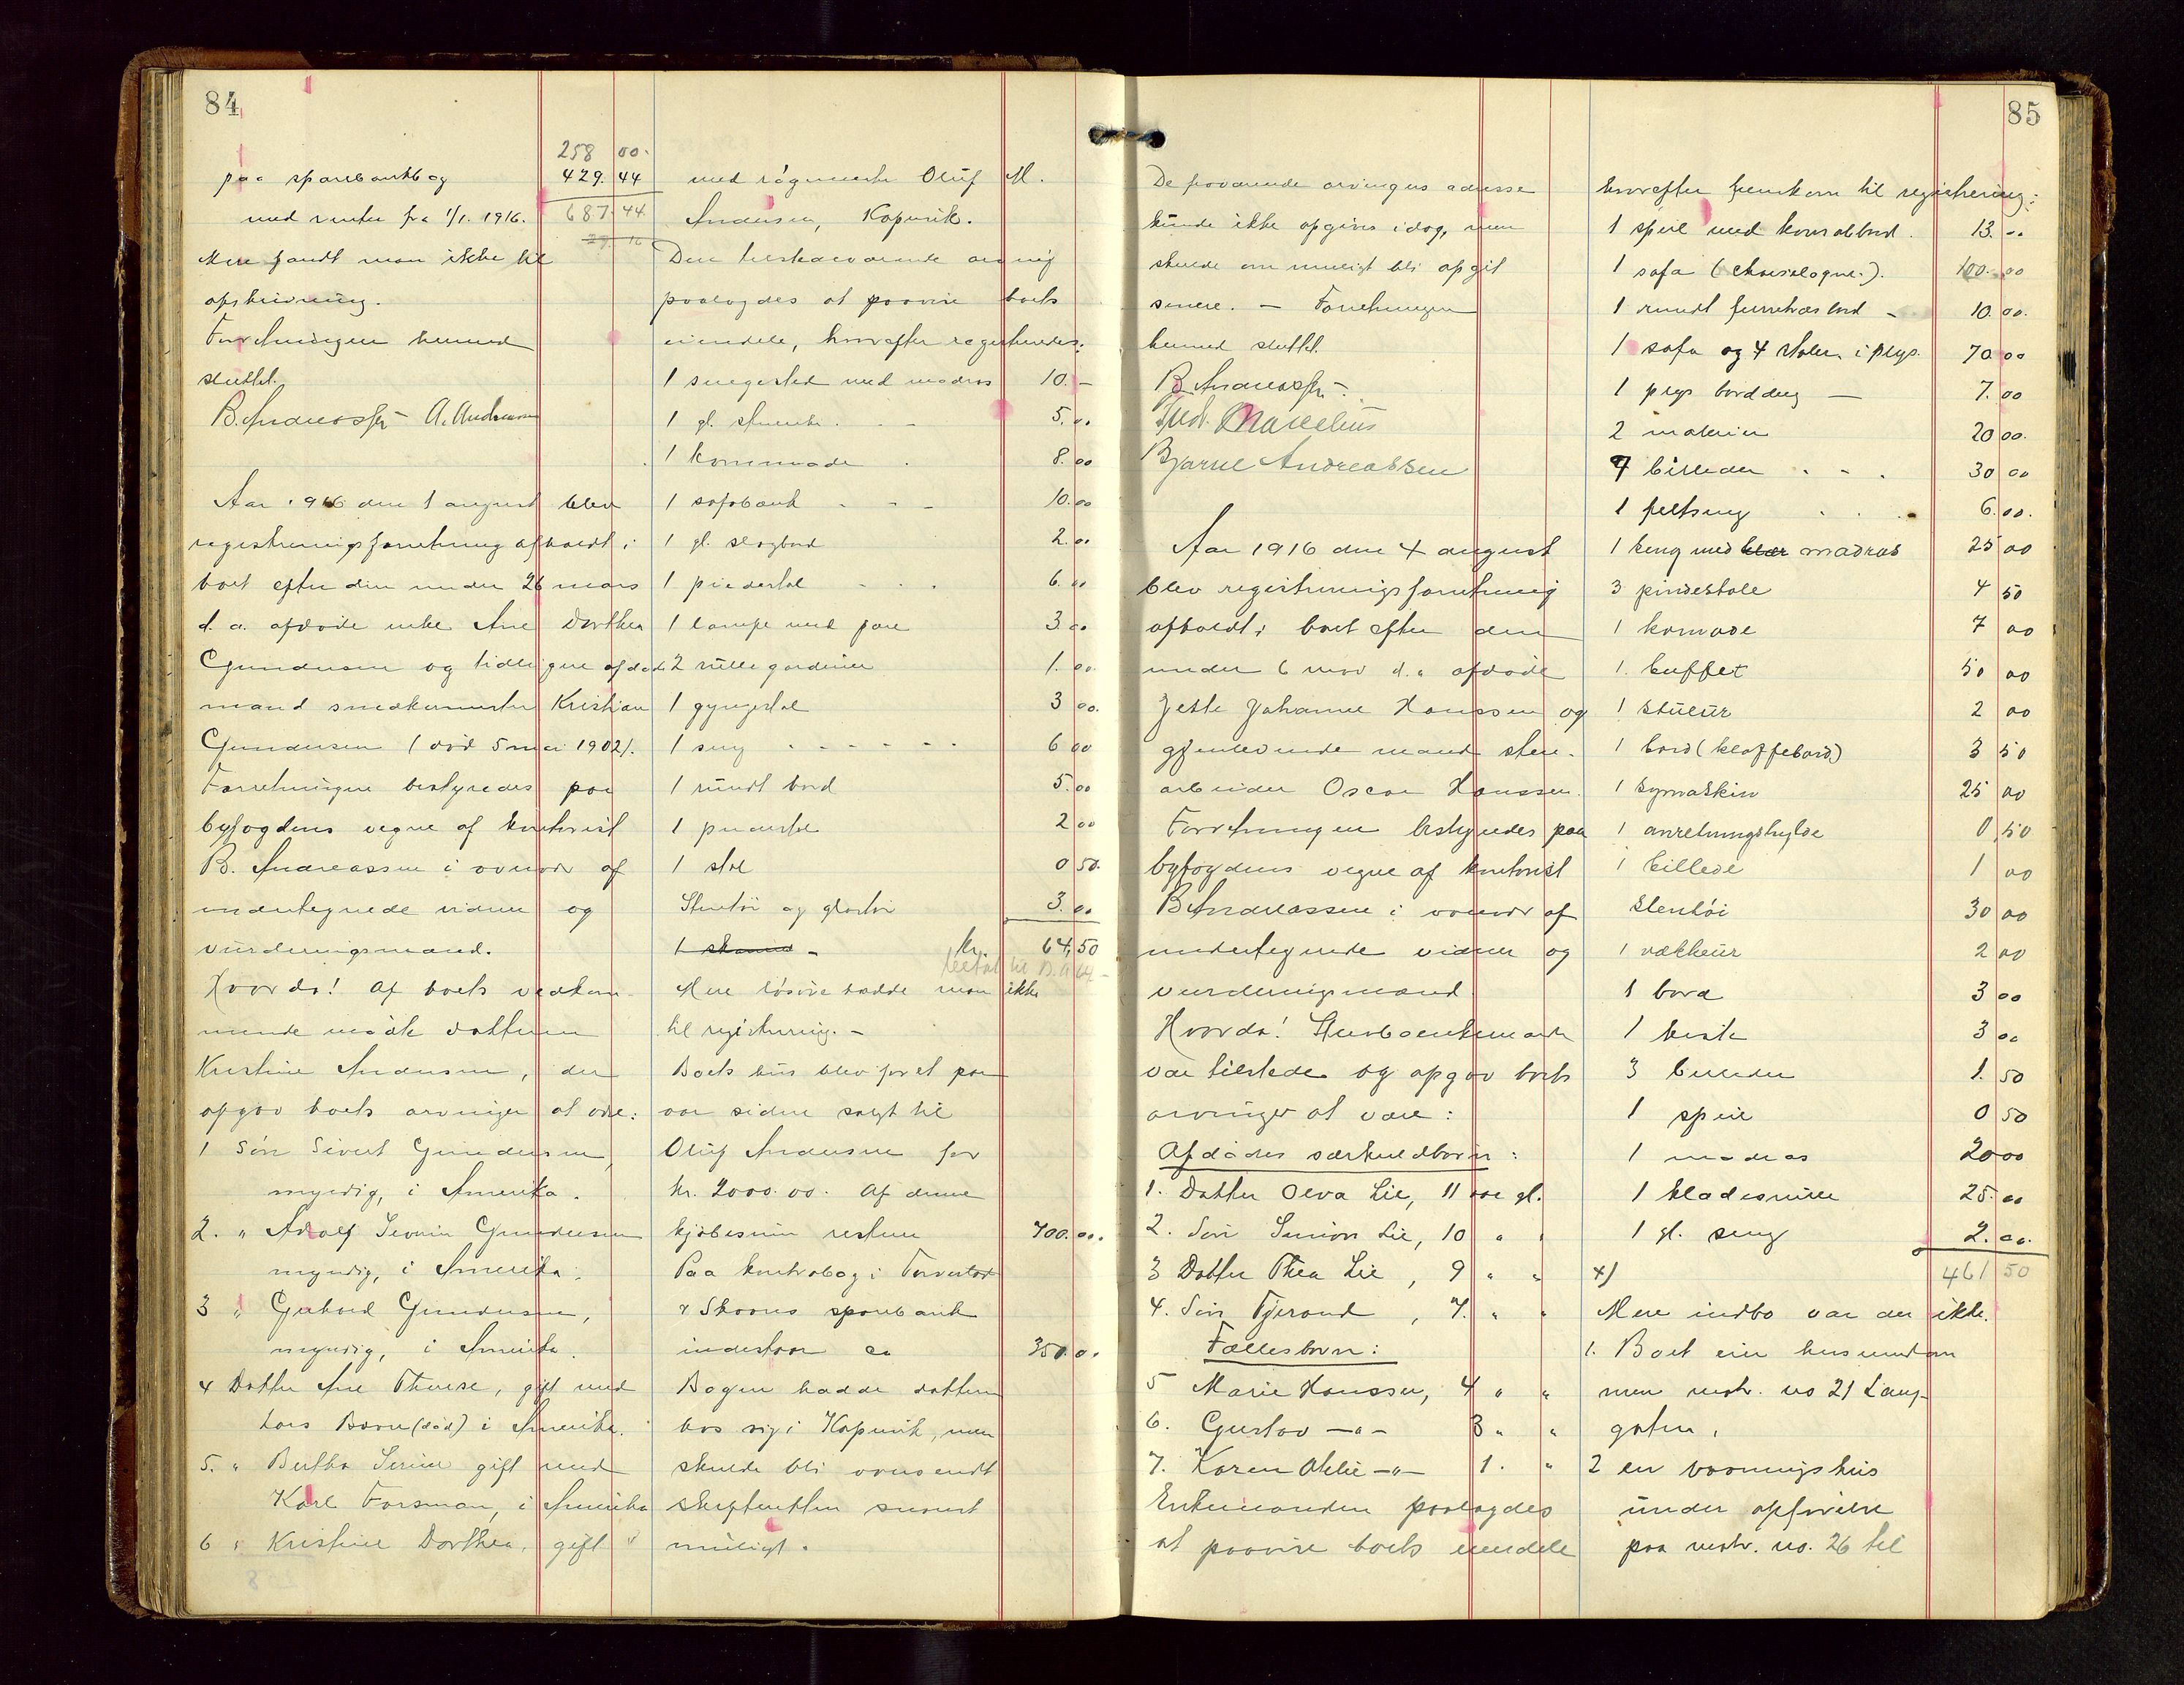 84
258 00.
paa sparebankbog 429. 44
med renter fra 1/1. 1916. 687.44
Mere fandt man ikke til
opskrivning.
Forretningen hermed
sluttet.
B. Andreassen A. Andreassen
Aar 1916 den 1 august blev
registreringsforretning afholdt i
boet efter den under 26 mars
d. a. afdøde enke Ane Dorthea
Gundersen og tidligere afdøde
mand snedkermester Kristian
Gundersen (død 5 mai 1902).
Forretningen bestyredes paa
byfogdens vegne af kontorist
B. Andreassen i overvær af
undertegnede vidner og
vurderingsmænd.
Hvorda! Af boets vedkom-
mende mødte datteren
Kristine Andersen, der
opgav boets arvinger at være:
1 Søn Sivert Gundersen,
myndig, i Amerika.
2. " Adolf Severin Gundersen
myndig, i Amerika.
3 " Gerhard Gundersen,
myndig, i Amerika.
4 Datter Ane Therese, gift med
Lars Borre (død) i Amerika.
5. " Bertha Serine gift med
Karl Forsman, i Amerika
6 " Kristine Dorthea, gift
med røgemester Oluf M.
Andersen, Kopervik.
Den tilstedeværende arving
paalagdes at paavise boets
eiendele, hvorefter registreredes:
1 sengested med madras 10. -
1 gl. skjænk . . - 5.00
1 kommode . 8.00
1 sofabænk - - - 10.00
1 gl. slagbord 2.00
1 pindestol - . . 6.00
1 lampe med fore 3.00
2 rullegardiner 1.00.
1 gyngestol 3 00.
1 seng . - - - - - 6 00
1 rundt bord 5.00
1 pindestol 2 00
1 stol 0 50.
Stentøi og glastøi 3.00
kr. 64,50
Mere løsøre hadde man ikke
til registrering. -
Boets hus blev for et par
aar siden solgt til
Oluf Andersen for
kr. 2000.00. Af denne
kjøbesum resterer 700.00.
Paa kontrabog i Torvestad
& Skaares sparebank
indestaar ca 350.00
Bogen hadde datteren
hos sig i Kopervik, men
skulde bli oversendt
skifteretten snarest
muligt.
85
De fraværende arvingers adresse
kunde ikke opgives idag, men
skulde om muligt bli opgit
senere. - Forretningen
hermed sluttet.
B. Andreassen
Bjarne Andreassen
Aar 1916 den 4 august
blev registreringsforretning
afholdt i boet efter den
under 6 d.a afdøde
Jette Johanne Hanssen og
gjenlevende mand sten-
arbeider Oscar Hanssen.
Forretningen bestyredes paa
byfogdens vegne af kontorist
B Andreassen i overvær af
undertegnede vidner og
vurderingsmænd
Hvorda! Sterboenkemanden
var tilstede og opgav boets
arvinger at være:
Afdødes særkuldbørn:
1. Datter Olva Lie, 11 aar gl.
2. Søn Simon Lie, 10 " "
3 Datter Thea Lie , 9 " "
4. Søn Tjerand , 7. " "
Fællesbørn:
5 Marie Hanssen, 4 " "
6. Gustav -"- 3 " "
7. Karen -"- 1. "
Enkemanden paalagdes
at paavise boets eiendele
hvorefter fremkom til registrering:
1 speil med konsolbord . 13. 00
1 sofa (chaiselogne.). 100. 00
1 rundt furretræs bord - 10.00.
1 sofa og 4 stoler i plys. 70 00
1 plys borddug - 7.00
2 malerier 20 00.
7 billeder . - . 30 00
1 feltseng . . . 6.00.
1 seng med klær madras 25 00
3 pindestole 4 50
1 komode 7 00
1. buffet 50 00
1 stueur 2 00
1 bord (klaffebord) 3 50
1 symaskin 25 00
1 anretningshylde 0,50
1 billede 1 00
Stentøi 30 00
1 vækkeur 2 00
1 bord 3 00
1 kiste 3 00
3 billeder 1. 50
1 speil 0 50
1 madras 20 00
1 klædesrulle 25.00
1 gl. seng 2.00.
x) 461 50
Mere indbo var der ikke.
1. Boet eier
matr. no 21 Lang-
gaten.
2 en vaaningshus
under opførelse
paa matr. no. 26 til